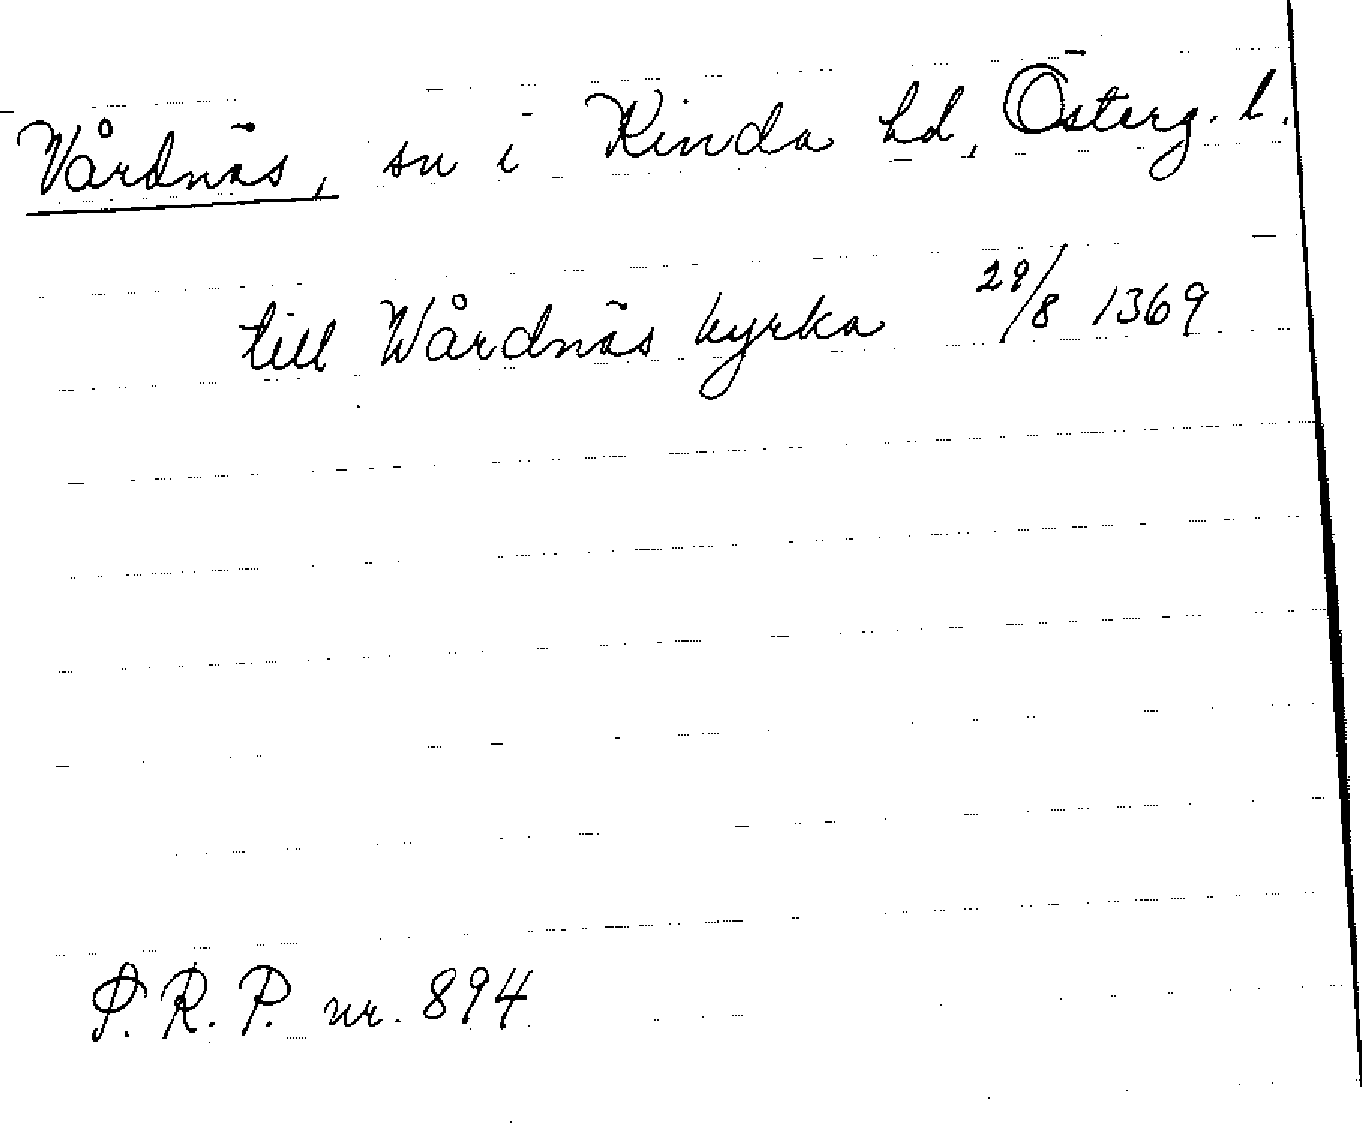 Vårdnäs, sn i Kinda hd, Österg. l.
till Wårdnäs kyrka 29/8 1369
P. R. P. nr. 894